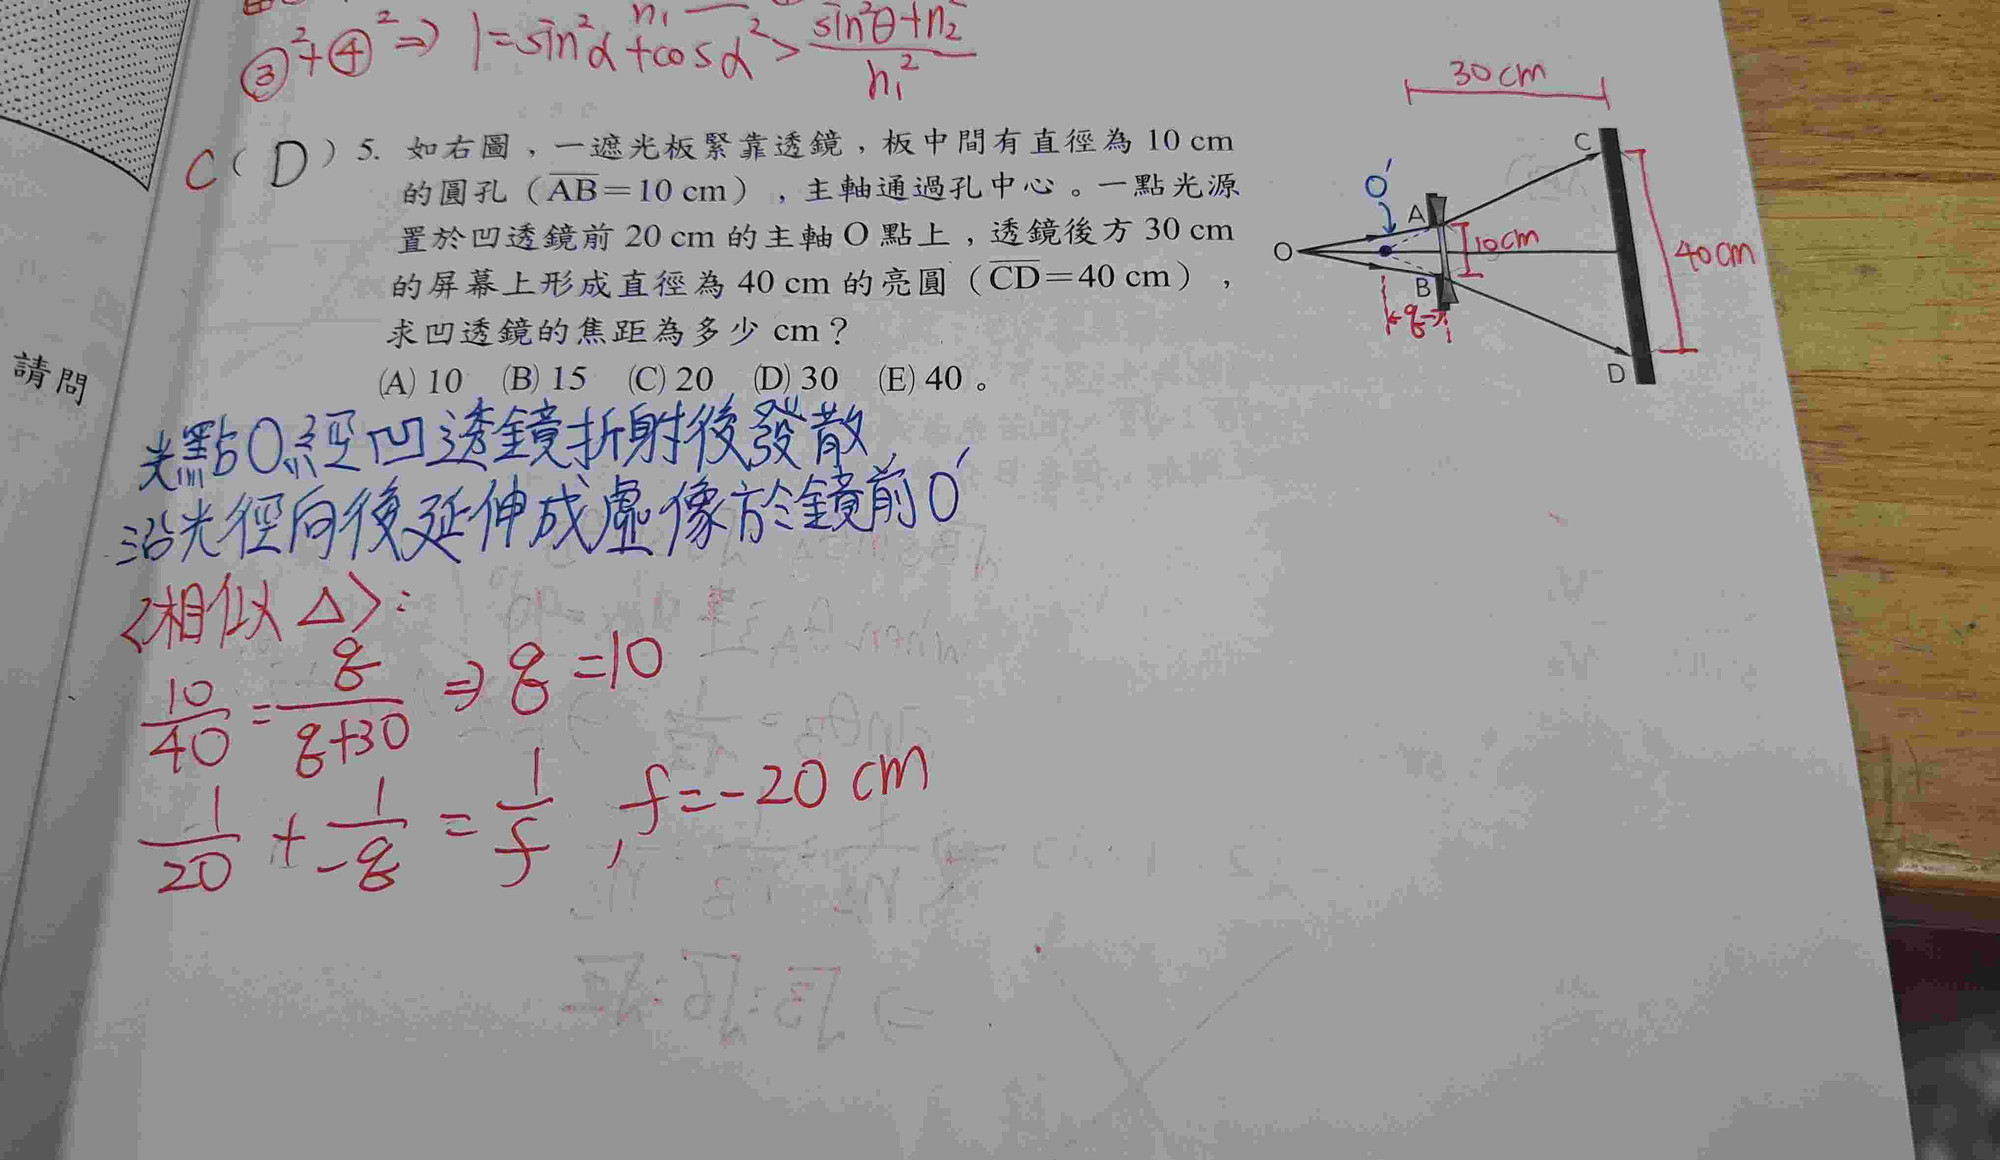 ③²+④² ⇒ 1=sin²α+cosα²>sin²θ+n₂²/n₁²
30cm
C(D)5. 如右圖，一遮光板緊靠透鏡，板中間有直徑為 10 cm
的圓孔（AB=10 cm），主軸通過孔中心。一點光源
置於凹透鏡前 20 cm 的主軸 O 點上，透鏡後方 30 cm
的屏幕上形成直徑為 40 cm 的亮圓（CD=40 cm），
求凹透鏡的焦距為多少 cm？
(A) 10 (B) 15 (C) 20 (D) 30 (E) 40 。
C
O'
A
O
10cm
40cm
B
q
D
請問
光點O經凹透鏡折射後發散
沿光徑向後延伸成虛像於鏡前O'
<相似△>:
10/40=q/q+30 ⇒ q=10
1/20+1/-q=1/f , f=-20 cm